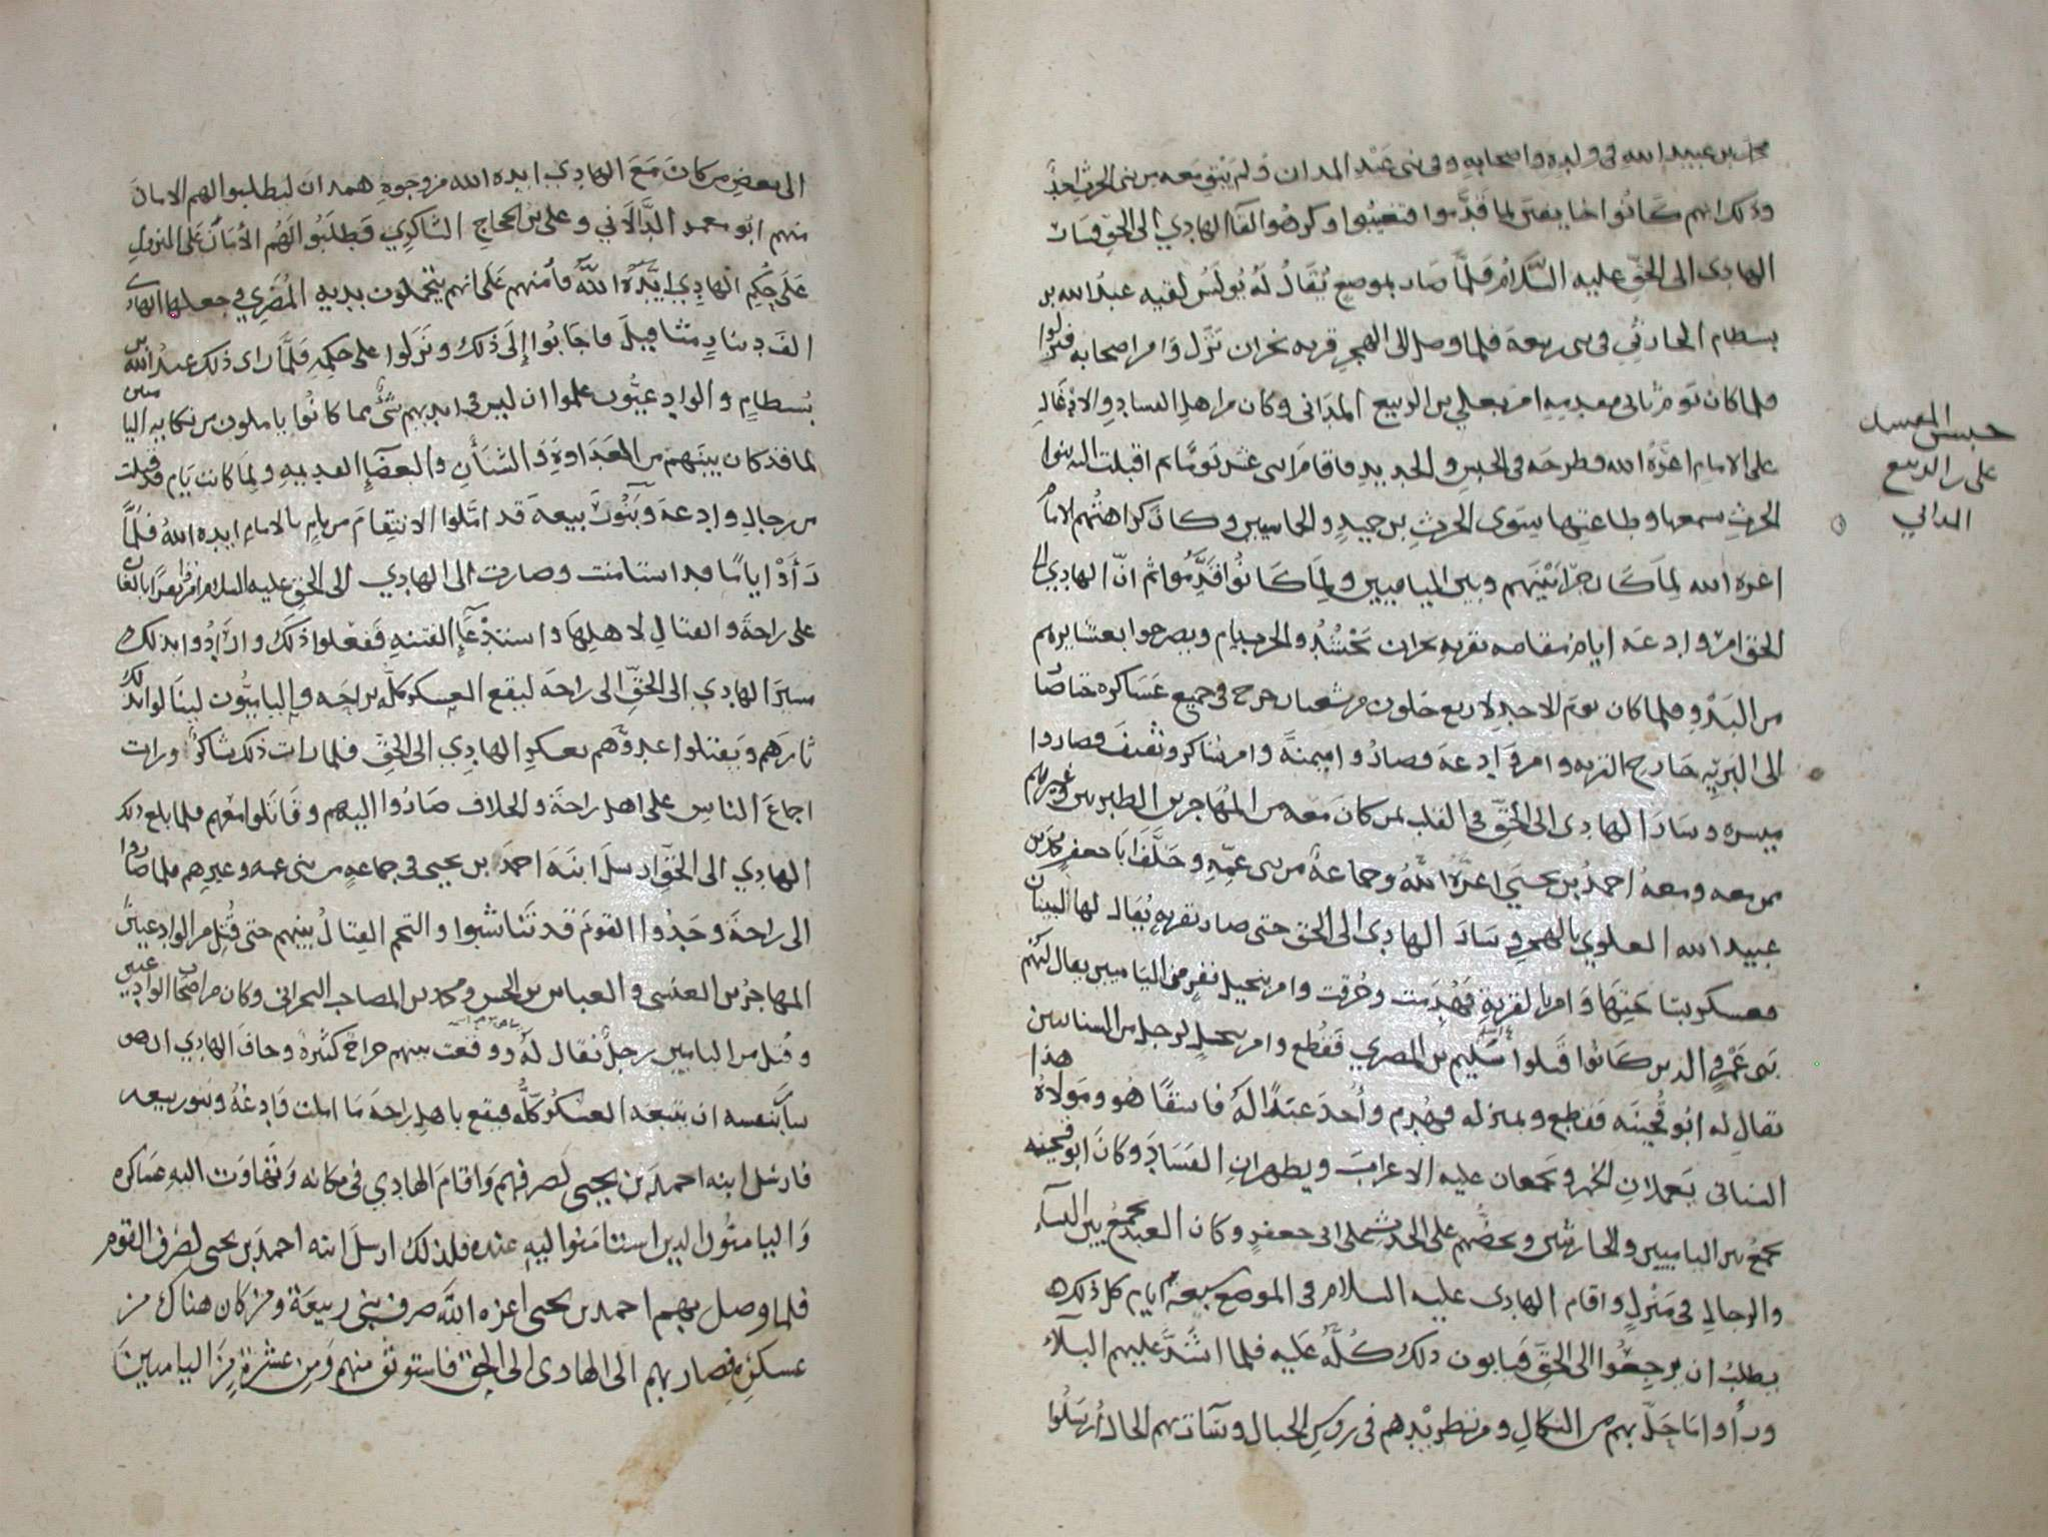 محمد بن عبيد الله في ولده واصحابه وفى بنى عَبْدِ المدان وَلم يَبْقِ معه من بنى الحرث احدٌ
وذلك انهم كَانُوا خايفين لما قَدَّموا فتغيبُوا وكرهُوا لقآ الهادِي الى الحقِّ فسَار
الهادى الى الحَقِّ عليه السَّلامُ فَلمَّا صَار بموضعٍ يُقَالُ لَهُ بُولَسُ لقيه عبدُ الله بن
بسطام الحارثيُّ فى بنى ربيعة فلما وصل الى الهجر قريه نجران نَزَل وَامر اصحابه فنزلوا
فلما كان يَومُ ثانى مقدمِهِ امر بعلي بن الربيع المدَانى وكان من اهلِ الفسادِ والادغالِ
على الامام اعزَّهُ الله فطرحَه فى الحبسِ والحديدِ فاقامَ اثنى عشر يَومًا ثم اقبلت اليه بنوا
الحرثِ بسمعها وطاعتِها سِوَى الحرثِ بن حميدٍ والحماسيين وكانَ كراهتُهم للامام
اعزه الله لِمَا كَان جَرَا بَيْنَهم وبين الياميين ولِمَا كَانُوا قَدَّمُوا ثم انّ الهادِي الى
الحق امرَ وادعَه ايام مقامه بقريةِ نجران تَحْتشِدُ والحرب ليام ويصرحوا بعشايرهم
من البَدْوِ فلما كان يومَ الاحدِ لاربع خلون من شعبان خرج فى جميع عَسَاكره خاصًا
الى البَرِيّهِ خارج القريه وامر وَادِعَةَ فصارُوا ميمنةً وامر شاكر وثقيفَ فصاروا
ميسره وسَارَ الهادى الى الحَقِّ فى القلب بمن كانَ معه من المُهَاجرين الطبريين وغيرهم
ممن معه ومعهُ احمدُ بن يحيى اعزَّهُ اللهُ وجماعةٌ من بنى عمِّهِ وخلَّفَ ابا جعفرٍ محمد بن
عبيد الله العلوي بالهجرِ وسَارَ الهادى الى الحق حتى صار بقريهٍ يُقالُ لها البيتان
فعسكر بناحيتِهَا وَامر بالقريةِ فَهُدِمَت وحُرقت وامر بنخيل نفرٍ من الياميين يقال لهم
بنى عَمْرٍو الدين كَانُوا قَتلوا سُلَيم بن المصري فقُطع وامر بنخلٍ لرجلٍ من السنانيين
يقالُ له ابُو مُحَيِّنَه فقطع وبمنزله فهُدِمَ وأُخذ عَبْدًا لهُ فاسقًا هُو ومَولاهُ هذا
السنانى يَعملانِ الخمر ويجمعان عليه الاعرابَ ويظهرانِ الفَسَادَ وكانَ ابو مُحَينه
يجمعُ بين الياميين والحارثين ويحضُّهم على الحدث على ابى جعفرٍ وكان العبدُ يجمعُ بين النسآء
والرجالِ فى مَنْزِلٍ واقام الهادى عليه السلام فى الموضع سبعةَ ايام كل ذلك
يطلبُ ان يرجعُوا الى الحَقِّ فيابون ذلك كُلَّهُ عَليه فلما اشتدَّ عليهم البلآءُ
ورأوا مَا حَلَّ بهم من النكالِ ومن تطريْدِهم فى روسِ الجبال وسآت بهم الحالُ أرسَلُوا
حبس المفسد
على بن الربيع
المدانى
الى بعضِ من كانَ مَعَ الهادِي ايده الله من وجوهِ همدان ليطلبوا لهم الامان
منهم ابُو معمر الدَّالَاني وعلى بن الحجاج الشاكِرِي فطلبُوا لَهُم الأمَانَ على النزولِ
عَلَى حُكِمِ الهادِي ايَّدَهُ اللهُ فأمَنهم عَلَى انهم يَتحملون بديهِ المُصَرِي فجعلها الهادى
الف دينارٍ مثاقيلَ فاجَابُوا إلَى ذلك ونَزَلوا على حكمِهِ فَلمَّا راى ذلك عبدُ الله بن
بُسطامٍ والوادعيُّون علموا ان ليس فى ايديهم شىءٌ مما كانُوا ياملون من نكايه الياميين
لما قد كان بينَهم من العَدَاوةِ وَالشَنَأنِ والبغضَآءِ القديمهِ ولِمَا كانت يَام قد قتلت
من رجالِ وادعة وَبَنُو رَبيعهَ قد امَّلوا الانتِقامَ من يامٍ بالامامِ ايده اللهُ فلمَّا
رَأوْا يامًا قد استامنت وصارت الى الهادِي الى الحق عليه السلام
على راحةَ والقتالِ لاهلِهَا واستدْعَآءِ الفتنهِ فَفعلوا ذَلك وارَادُوا بذلك
مسيرَ الهادِي الى الحَقِّ الى راحَه ليقع العسكر كلّه براحَه والياميُّون لينَالوا بذلك
ثارَهم وَيقتلوا عدوَّهم بعسكرِ الهادِي الى الحَقِّ فلما رات ذلك شاكرُ ورات
اجماعَ الناسِ على اهلِ راحَةَ والخلاف صَارُوا اليهم وقَاتَلوا معَهم فلما بلغ ذلك
الهادِي الى الحَقّ ارسَلَ ابنَهَ احمدَ بن يحيى فى جماعهٍ من بنى عمه وغيرِهم فلما صاروا
الى راحَةَ وجَدُوا القومَ قد تَنَاشبوا والتحم القِتالُ بينهم حتى قُتِل من الوادعيينَ
المهاجرُ بن العنسى والعباس بن الحسن ومحمد بن المصاحب البحرانى وكان من اصحاب الوادعيين
وقُتل من الياميين رجلٌ يُقال لهُ ووقعت بينهم جراحٌ كثيرهٌ وخافَ الهادِي ان هو
سَارَ بنفسه ان يتبعَه العسْكَرُ كلُّه فيقع باهلِ راحةَ مَا املت وَادِعَةُ وبنو ربيعه
فارسَل ابنه احمدَ بن يحيى لصرفهم وَاقامَ الهادِي فى مكانه وَتهاوَت اليه عسَاكره
وَاليامتُّون الدين استامَنُوا اليهِ عنده فلذلك ارسَلَ ابنه احمدَ بن يحيى لصَرفِ القوم
فلما وصل بهم احمد بن يحيى اعزه الله صرف بنى ربيعَة ومن كان هناك من
عسكَرِهِ فصار بهم الى الهادى الى الحق فاستوثق منهم وَمِن عشرة مِنَ الياميينَ